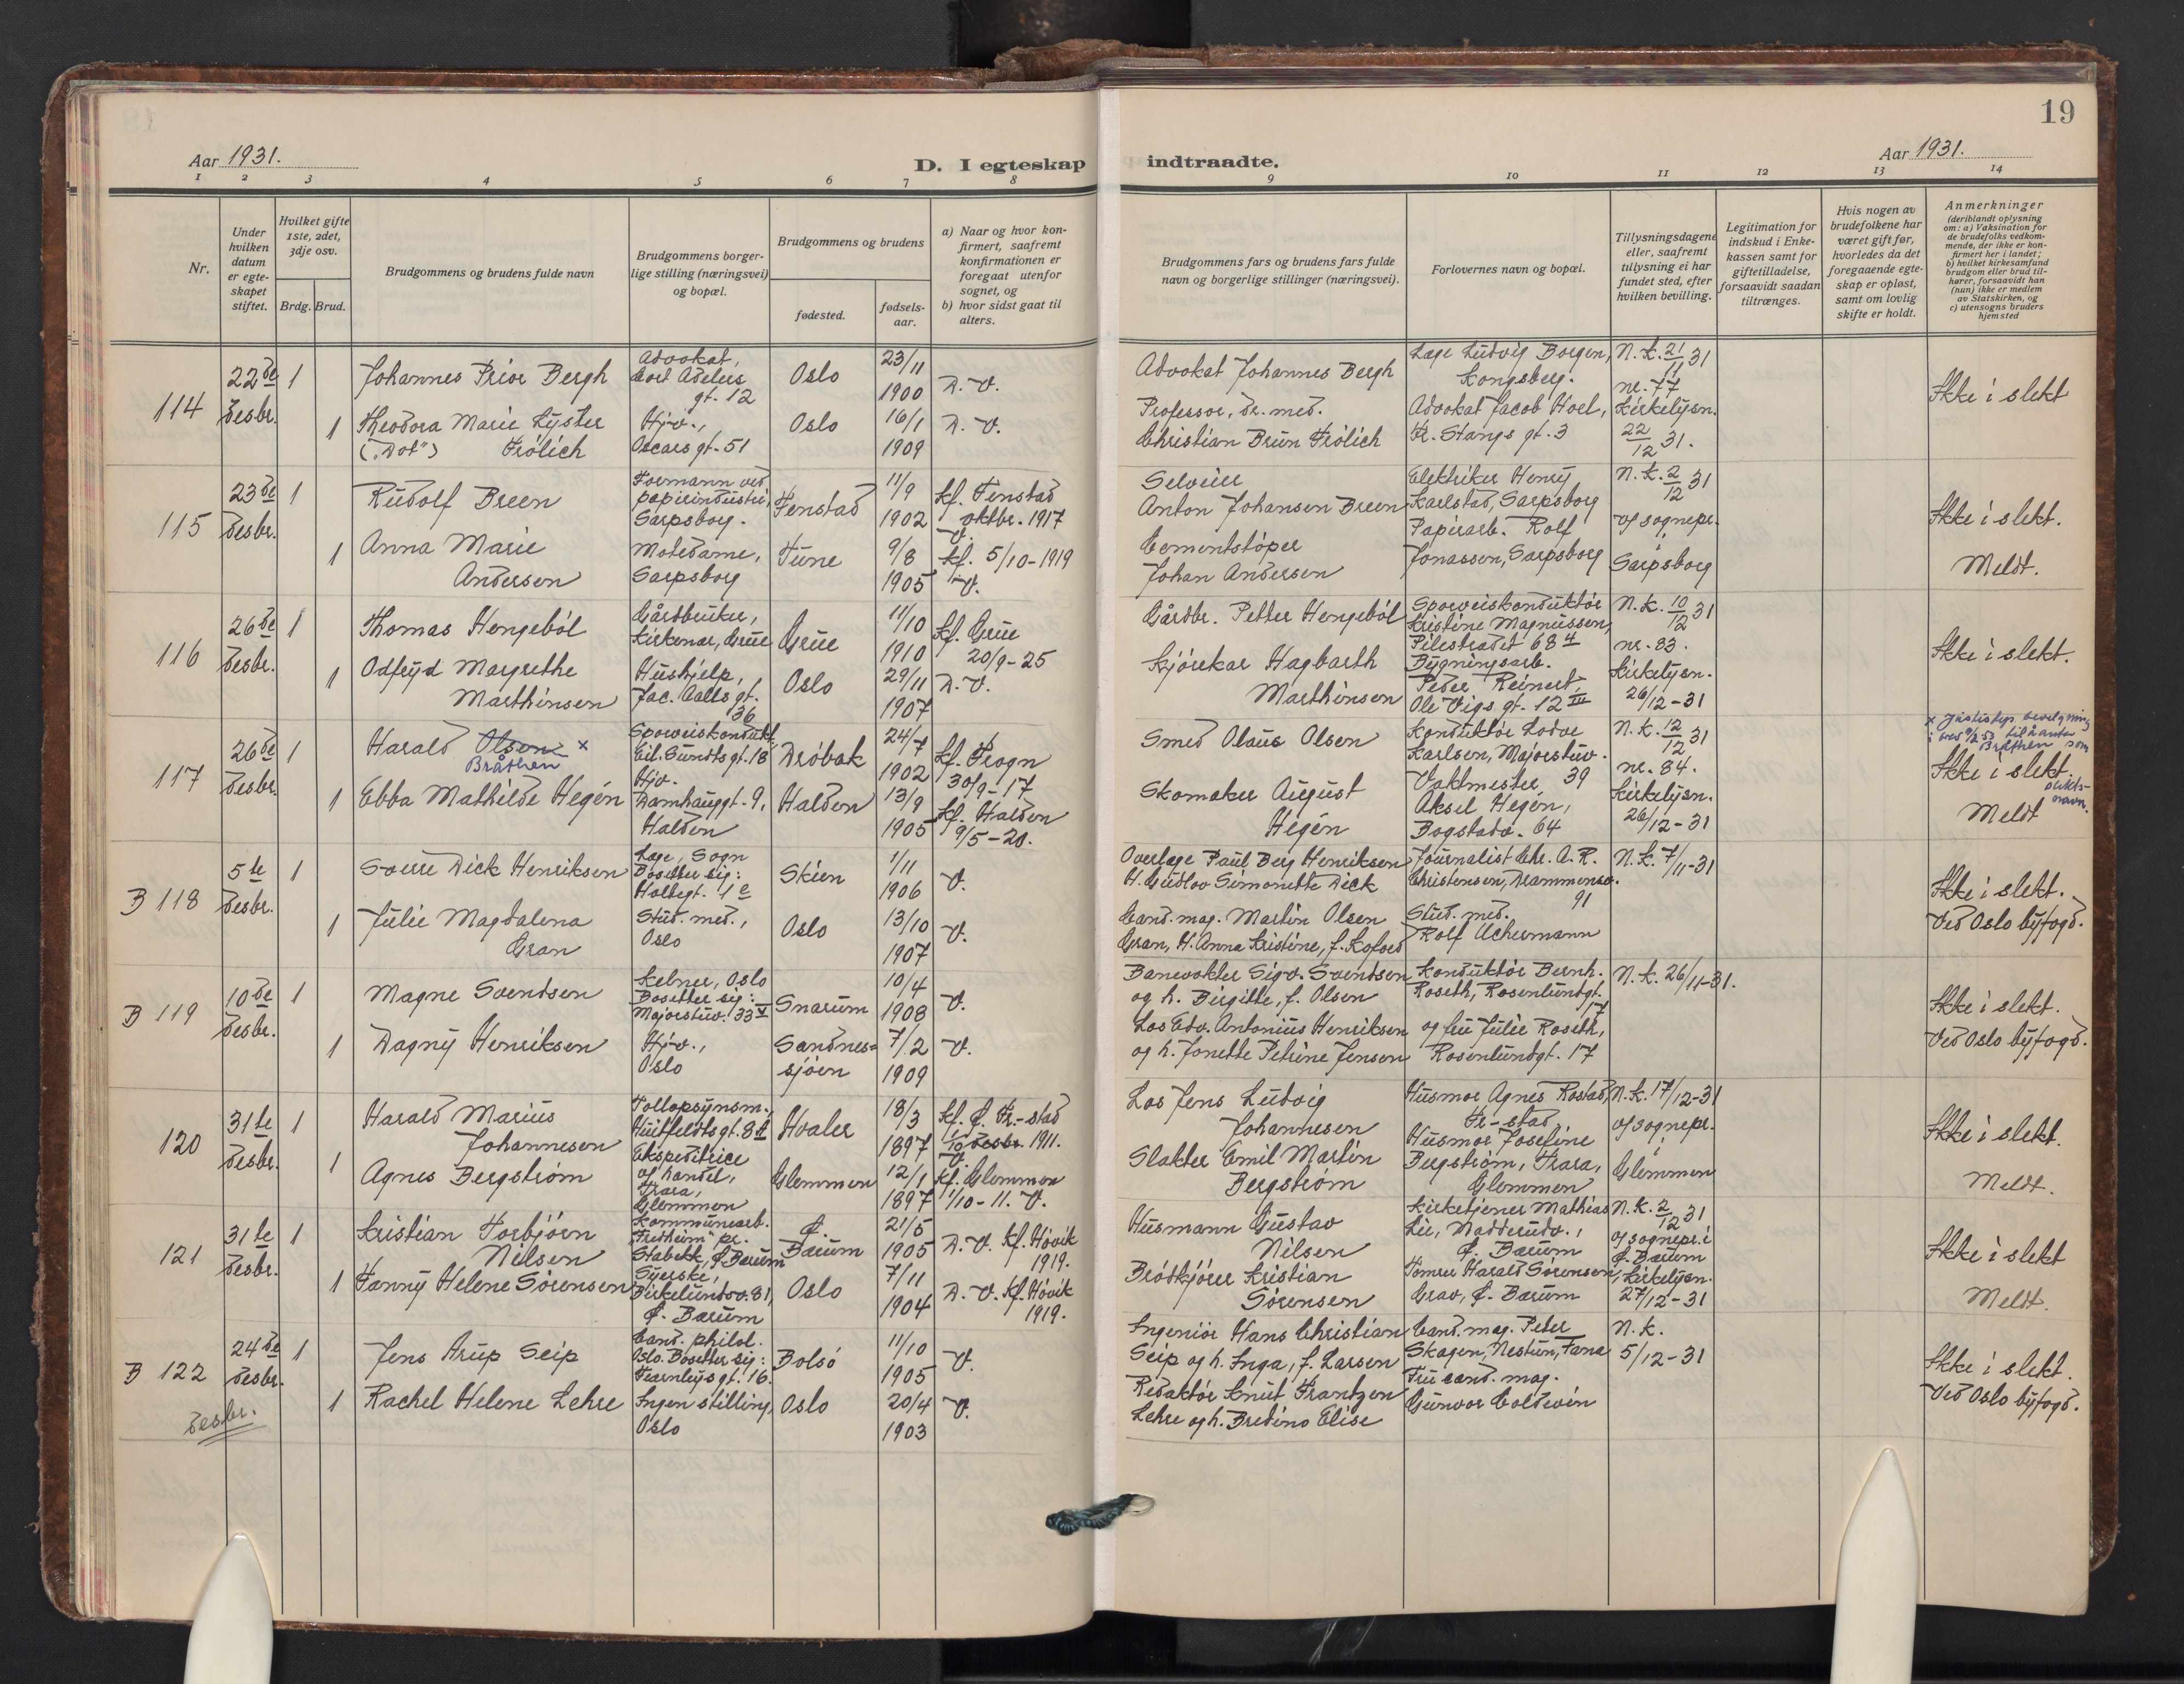 19
Aar 1931.
D. I egteskap indtraadte.
Aar 1931.
1 2 3 4 5 6 7 8 9 10 11 12 13 14
Nr.
Under hvilken datum er egteskapet stiftet.
Hvilket gifte 1ste, 2det, 3dje osv.
Brdg. Brud.
Brudgommens og brudens fulde navn
Brudgommens borgerlige stilling (næringsvei) og bopæl.
Brudgommens og brudens
fødested.
fødselsaar.
a) Naar og hvor konfirmert, saafremt konfirmationen er foregaat utenfor sognet, og
b) hvor sidst gaat til alters.
Brudgommens fars og brudens fars fulde navn og borgerlige stillinger (næringsvei).
Forlovernes navn og bopæl.
Tillysningsdagene eller, saafremt tillysning ei har fundet sted, efter hvilken bevilling.
Legitimation for indskud i Enkekassen samt for giftetilladelse, forsaavidt saadan tiltrænges.
Hvis nogen av brudefolkene har været gift før, hvorledes da det foregaaende egteskap er opløst, samt om lovlig skifte er holdt.
Anmerkninger
(deriblandt oplysning om: a) Vaksination for de brudefolks vedkommende, der ikke er konfirmert her i landet; b) hvilket kirkesamfund brudgom eller brud tilhører, forsaavidt han (hun) ikke er medlem av Statskirken, og c) utensogns bruders hjemsted
114
22de desbr.
1 Johannes Prior Bergh
Advokat, Cort Adelers gt. 12
Oslo
23/11 1900
D. V.
Advokat Johannes Bergh
Læge Ludvig Borgen, Kongsberg.
N.K. 21/11 31
nr. 77
Ikke i slekt
1 Theodora Marie Lyster („Dot") Frölich
Hjv., Oscars gt. 51
Oslo
16/1 1909
D. V.
Professor, dr. med. Christian Brun Frölich
Advokat Jacob Hoel, Fr. Stangs gt. 3
Kirkelysn. 22/12 31.
115
23de desbr.
1 Rudolf Breen
Formann ved papirindustri, Sarpsborg.
Fenstad
11/9 1902
Kf. Fenstad oktbr. 1917 V.
Selveier Anton Johansen Breen
Elektriker Henry Karlstad, Sarpsborg
N.K. 2/12 31
Ikke i slekt.
1 Anna Marie Andersen
Motedame, Sarpsborg
Tune
9/8 1905
Kf. 5/10-1919 V.
Cementstöper Johan Andersen
Papirarb. Rolf Jonassen, Sarpsborg
af sognepr. i Sarpsborg
Meldt.
116
26de desbr.
1 Thomas Hengeböl
Gårdbruker, Kirkenær, Grue
Grue
11/10 1910
Kf. Grue 20/9-25
Gårdbr. Petter Hengeböl
Sporveiskonduktör Kristine Magnussen, Pilestredet 68 4
N.K. 10/12 31
nr. 83.
Ikke i slekt.
1 Odfryd Margrethe Marthinsen
Hushjelp, Jac. Aalls gt. 36
Oslo
29/11 1907
D. V.
Kjörekar Hagbarth Marthinsen
Bygningsarb. Peder Reinert, Ole Vigs gt. 12 III
Kirkelysn. 26/12-31
117
26de desbr.
1 Harald Olsen × Bråthen
Sporveiskondukt., Eil. Sundts gt. 18
Dröbak
24/7 1902
Kf. Frogn 30/9-17
Smed Olaus Olsen
Konduktör Lodve Karlsen, Majorstuv. 39
N.K. 12/12 31
nr. 84.
× Justisdep. bevilgning i brev 9/2 53 til å anta Bråthen som slektsnavn.
Ikke i slekt.
1 Ebba Mathilde Hegén
Hjv. Damhauggt. 9, Halden
Halden
13/9 1905
Kf. Halden 9/5-20.
Skomaker August Hegén
Vaktmester Aksel Hegén, Bogstadv. 64
Kirkelysn. 26/12-31
Meldt
B 118
5te desbr.
1 Sverre Dick Henriksen
Læge, Sogn Bosetter sig: Holtegt. 1 c
Skien
1/11 1906
V.
Overlæge Paul Berg Henriksen H. Gudlov Simonette Dick
Journalist Chr. A. R. Christensen, Drammensv. 91
N.K. 7/11-31
Ikke i slekt.
1 Julie Magdalena Gran
Stud. med., Oslo
Oslo
13/10 1907
V.
Cand. mag. Martin Olsen Gran, H. Anna Kristine, f. Kofoed
Stud. med. Rolf Achermann
Ved Oslo byfogd.
B 119
10de desbr.
1 Magne Svendsen
Kelner, Oslo Bosetter sig: Majorstuv. 33 V
Snarum
10/4 1908
V.
Banevokter Sigv. Svendsen og h. Birgitte, f. Olsen
Konduktör Bernh. Roseth, Rosenlundgt. 17
N.K. 26/11-31.
Ikke i slekt.
1 Dagny Henriksen
Hjv., Oslo
Sandnessjöen
7/2 1909
V.
Los Edv. Antonius Henriksen og h. Jonette Petrine Jensen
og fru Julie Roseth, Rosenlundgt. 17
Ved Oslo byfogd.
120
31te desbr.
1 Harald Marius Johannesen
Tollopsynsm., Huitfeldts gt. 8
Hvaler
18/3 1897
Kf. Ø. Fr.-stad desbr. 1911. V.
Los Jens Ludvig Johannesen
Husmor Agnes Rostad, Fr-stad
N.K. 17/12-31
Ikke i slekt.
1 Agnes Bergström
Ekspeditrice af handel, Trara, Glemmen
Glemmen
12/1 1897
Kf. Glemmen 1/10-11. V.
Slakter Emil Martin Bergström
Husmor Josefine Bergström, Trara, Glemmen
af sognepr. i Glemmen
Meldt.
121
31te desbr.
1 Kristian Torbjörn Nilsen
Kommunearb. „Fredheim" pr. Stabekk, Ø. Bærum
Ø. Bærum
21/5 1905
D. V. Kf. Hövik 1919.
Husmann Gustav Nilsen
Kirketjener Mathias Lie, Nadderudv., Ø. Bærum
N.K. 2/12 31
af sognepr. i Ø. Bærum
Ikke i slekt
1 Fanny Helene Sörensen
Syerske, Birkelundsv. 31, Ø. Bærum
Oslo
7/11 1904
D. V. Kf. Hövik 1919.
Brödkjörer Kristian Sörensen
Tömrer Harald Sörensen, Grav, Ø. Bærum
Kirkelysn. 27/12-31
Meldt.
B 122
24de desbr.
1 Jens Arup Seip
Cand. philol. Oslo. Bosetter sig: Fearnleys gt. 16.
Bolsö
11/10 1905
V.
Ingeniör Hans Christian Seip og h. Inga, f. Larsen
Cand. mag. Peter Skagen, Nestun, Fana
N.K. 5/12-31
Ikke i slekt.
1 Rachel Helene Lehre
Ingen stilling, Oslo
Oslo
20/4 1903
V.
Redaktör Knut Frantzen Lehre og h. Bredine Elise
Fru cand. mag. Gunvor Coldevin
Ved Oslo byfogd.
desbr.